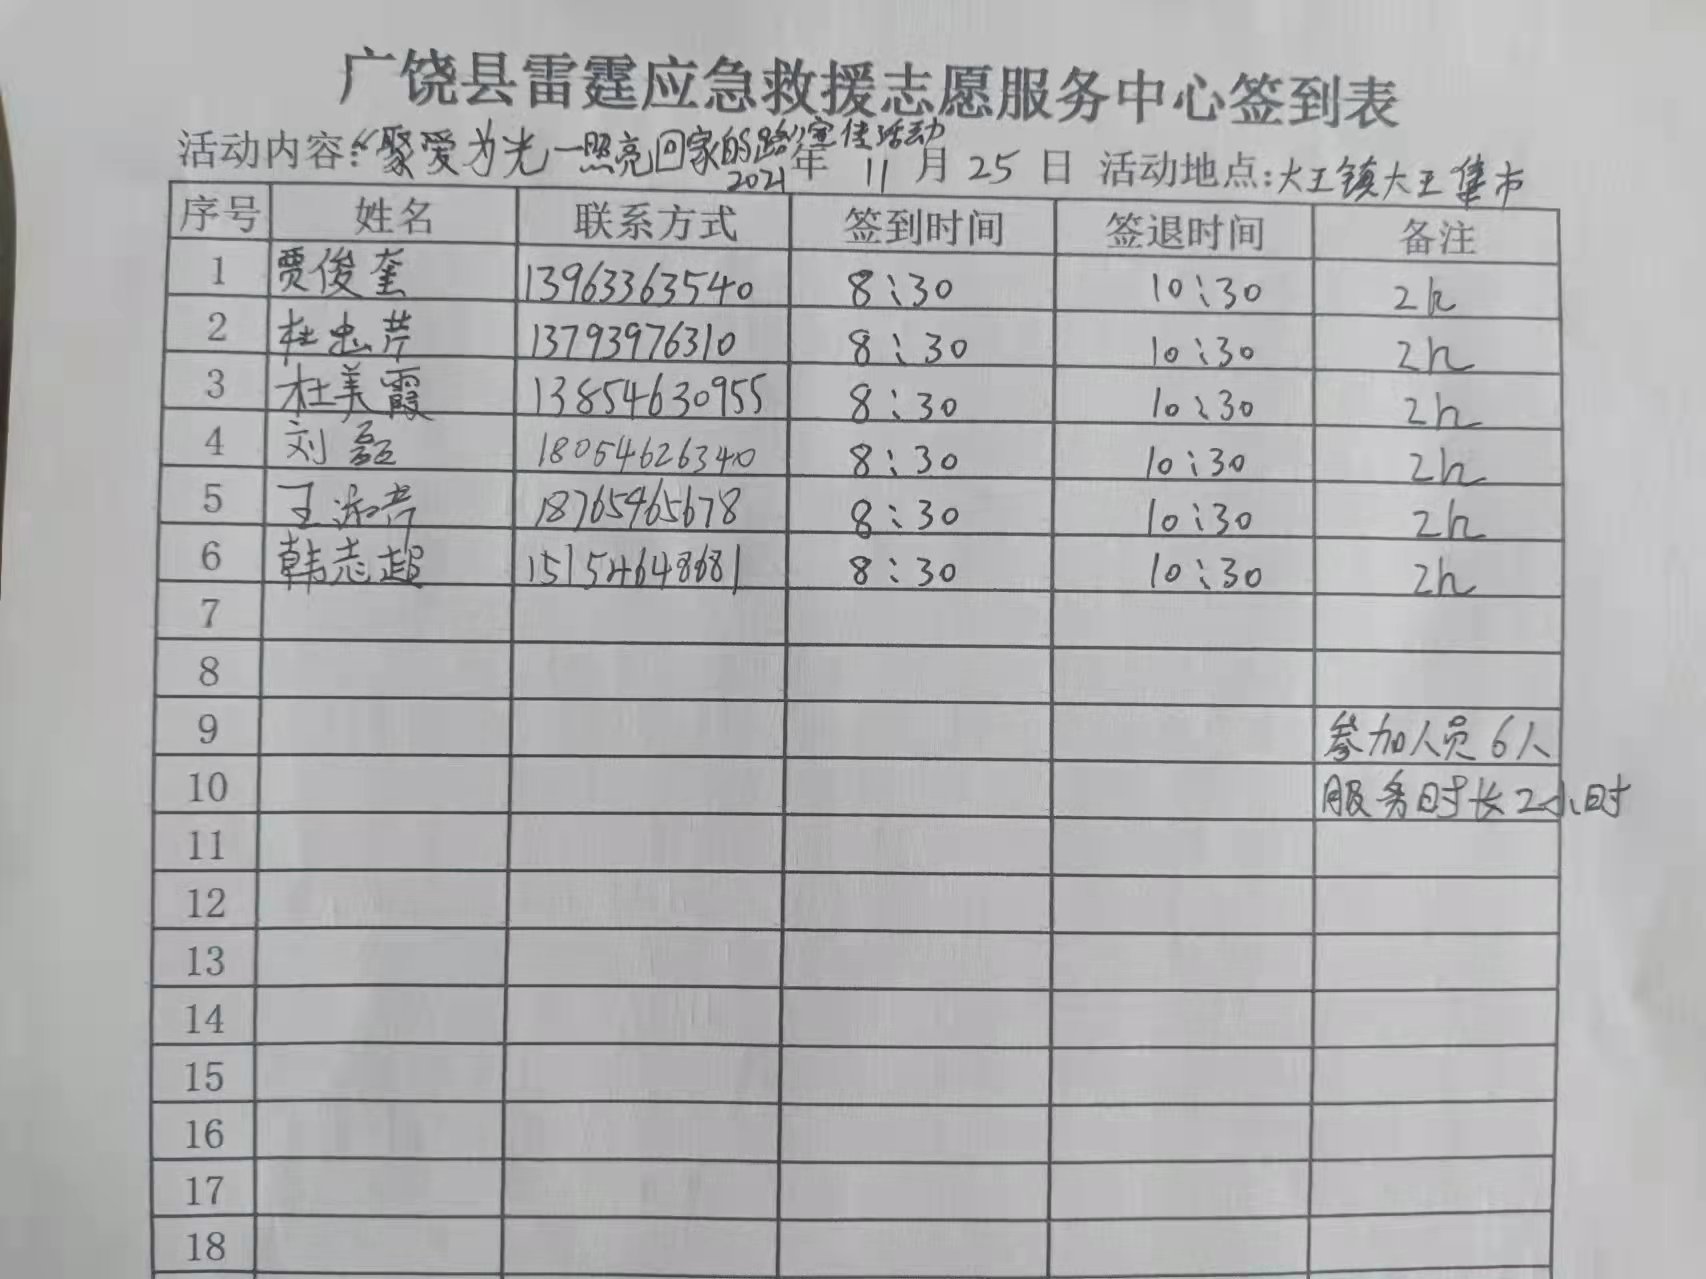 广饶县雷霆应急救援志愿服务中心签到表
活动内容:“聚爱为光一照亮回家的路”宣传活动 2021年 11月25日 活动地点:大王镇大王集市
序号 姓名 联系方式 签到时间 签退时间 备注
1 贾俊奎 13963363540 8:30 10:30 2h
2 杜忠芹 13793976310 8:30 10:30 2h
3 杜美霞 13854630955 8:30 10:30 2h
4 刘磊 18054626340 8:30 10:30 2h
5 王 18765465678 8:30 10:30 2h
6 韩志超 15154648681 8:30 10:30 2h
7
8
9 参加人员6人
10 服务时长2小时
11
12
13
14
15
16
17
18